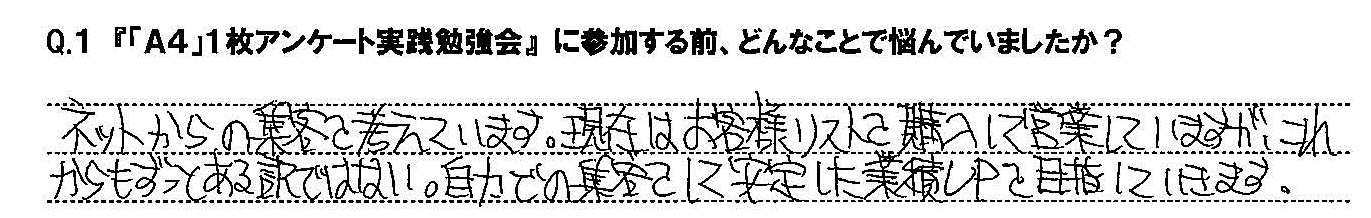 Q.1 『「A4」1枚アンケート実践勉強会』に参加する前、どんなことで悩んでいましたか？
ネットからの集客を考えています。現在はお客様リストを購入して営業していますが、これ
からもずっとある訳ではない。自力での集客をして安定した業績UPを目指していきます。